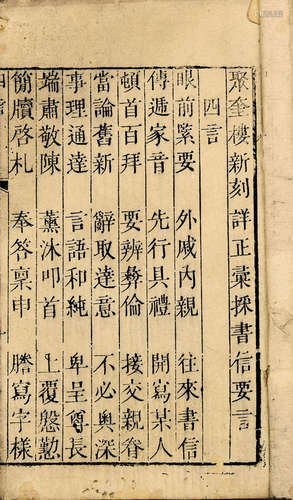 聚奎樓新刻詳正彙採書信要言
四言
眼前緊要 外戚內親 往來書信
傳遞家音 先行具禮 開寫某人
頓首百拜 要辨彝倫 接交親眷
當論舊新 辭取達意 不必奥深
事理通達 言語和純 卑呈尊長
端肅敬陳 薰沐叩首 上覆慇懃
簡牘啓札 奉答稟申 謄寫字樣